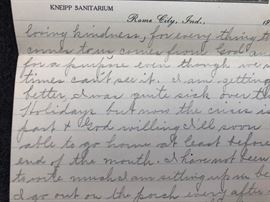 KNEIPP SANITARIUM
Rome City, Ind.
loving kindness, for every thing t
comes to us comes from God and
for a purpose even though we
times can't see it. I am getting
better, I was quite sick over th
Holidays but now the crisis is
past & God willing I'll soon
able to go home at least before
end of the month. I have not been
to write much I am sitting up in be
I go out on the porch every after